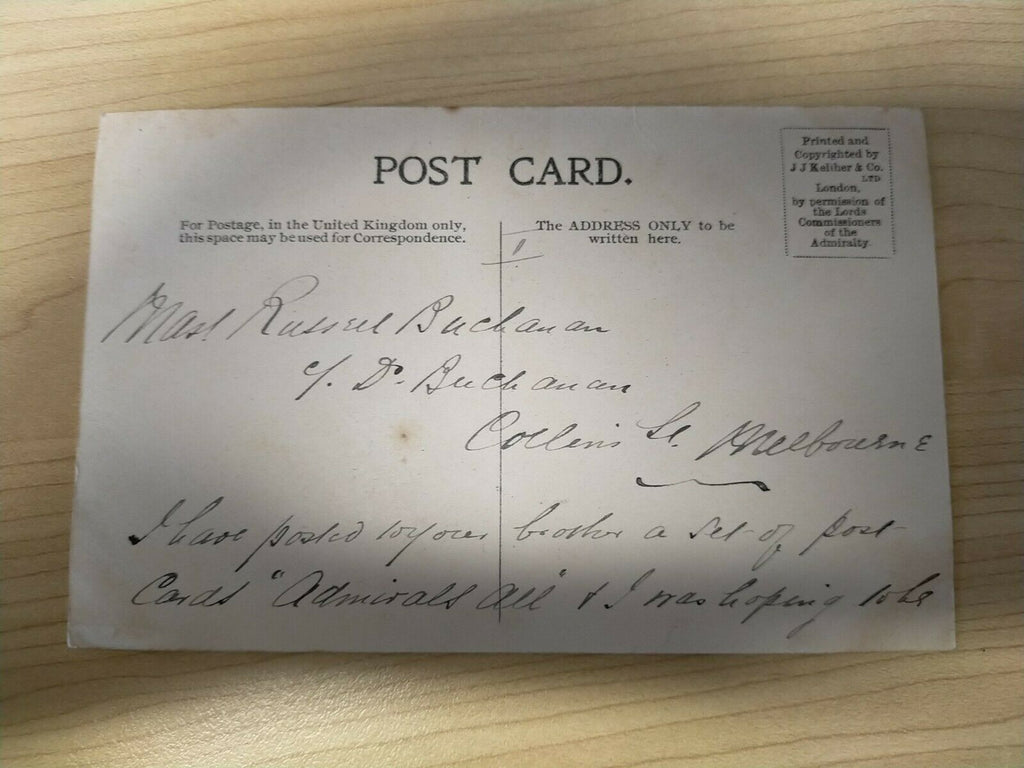 POST CARD.
Printed and
Copyrighted by
J J Keliher & Co.
LTD
London,
by permission of
the Lords
Commissioners
of the
Admiralty.
For Postage, in the United Kingdom only,
this space may be used for Correspondence.
The ADDRESS ONLY to be
written here.
Mast Russell Buchanan
c/. Dr. Buchanan
Collins St. Melbourne
I have posted to your brother a set of post
Cards "Admirals All" & I was hoping to be